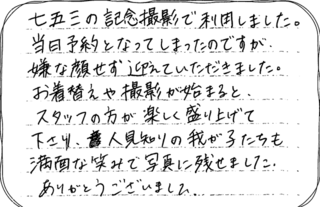 七五三の記念撮影で利用しました。
当日予約となってしまったのですが、
嫌な顔せず迎えていただきました。
お着替えや撮影が始まると、
スタッフの方が楽しく盛り上げて
下さり、人見知りの我が子たちも
満面な笑みで写真に残せました。
ありがとうございました。